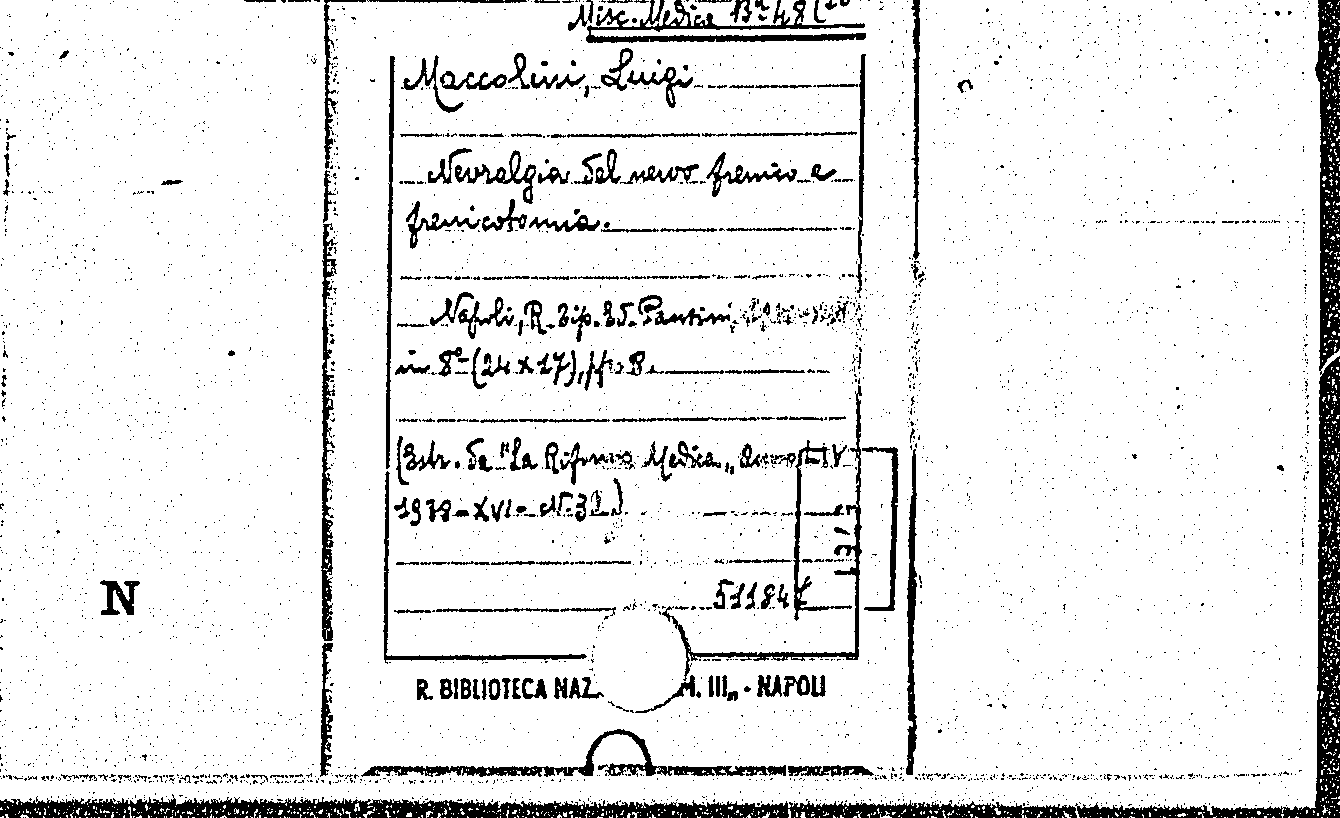 Misc. Medica Bª 48 (
Maccolini, Luigi
Nevralgia del nervo frenico e
frenicotomia.
Napoli, R. Tip. Ed. Pantini,
in 8º (24 x 17), pp. 8.
(Estr. da "La Riforma Medica„ Anno LIV
1938 - XVI - N. 3
511847
N
R. BIBLIOTECA NAZ. M. III„ - NAPOLI